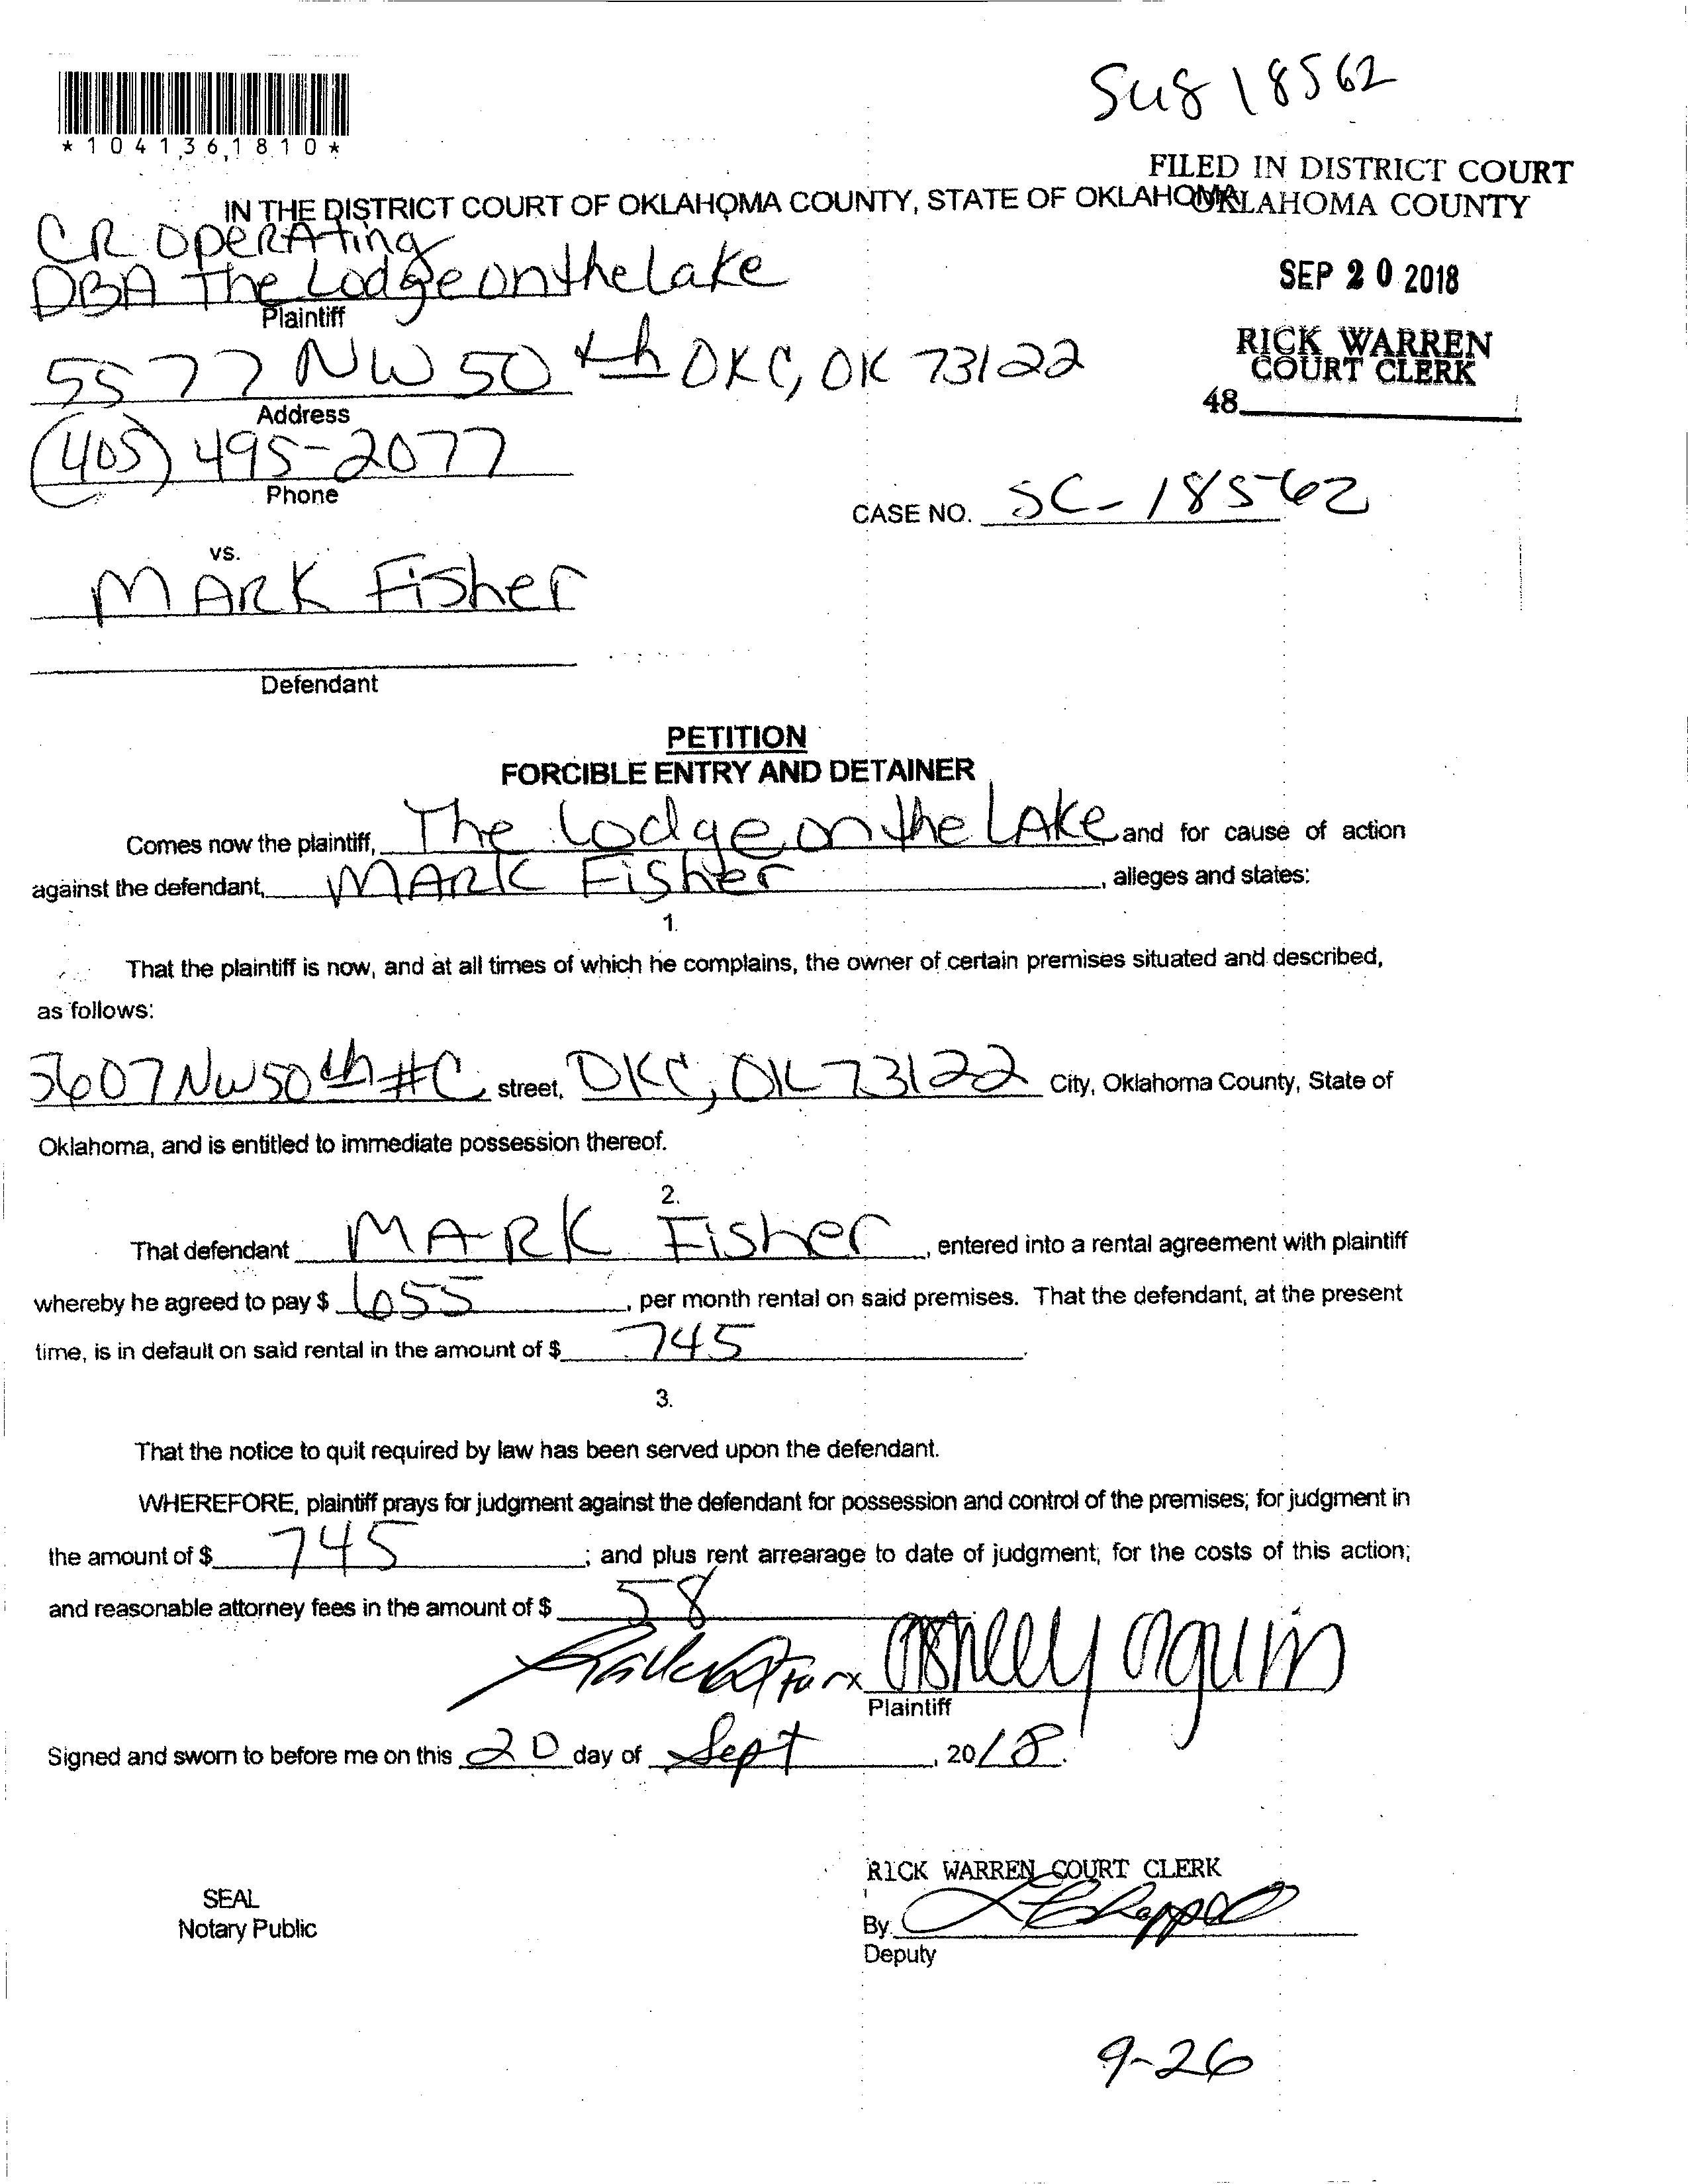 Sug 18562
*1041361810*
FILED IN DISTRICT COURT
OKLAHOMA COUNTY
IN THE DISTRICT COURT OF OKLAHOMA COUNTY, STATE OF OKLAHOMA
SEP 20 2018
RICK WARREN
COURT CLERK
48
CR Operating
DBA The Lodge on the Lake
Plaintiff
5577 NW 50th OKC, OK 73122
Address
(405) 495-2077
Phone
CASE NO. SC-18562
vs.
MARK Fisher
Defendant
PETITION
FORCIBLE ENTRY AND DETAINER
Comes now the plaintiff, The Lodge on the LAKe and for cause of action
against the defendant, MARK Fisher, alleges and states:
1.
That the plaintiff is now, and at all times of which he complains, the owner of certain premises situated and described,
as follows:
5607 NW 50th #C street, OKC, OK 73122 City, Oklahoma County, State of
Oklahoma, and is entitled to immediate possession thereof.
2.
That defendant MARK Fisher, entered into a rental agreement with plaintiff
whereby he agreed to pay $ 655, per month rental on said premises. That the defendant, at the present
time, is in default on said rental in the amount of $ 745.
3.
That the notice to quit required by law has been served upon the defendant.
WHEREFORE, plaintiff prays for judgment against the defendant for possession and control of the premises; for judgment in
the amount of $ 745; and plus rent arrearage to date of judgment; for the costs of this action;
and reasonable attorney fees in the amount of $ 58
Plaintiff
Signed and sworn to before me on this 20 day of Sept, 2018.
RICK WARREN COURT CLERK
SEAL
Notary Public
By
Deputy
9-26